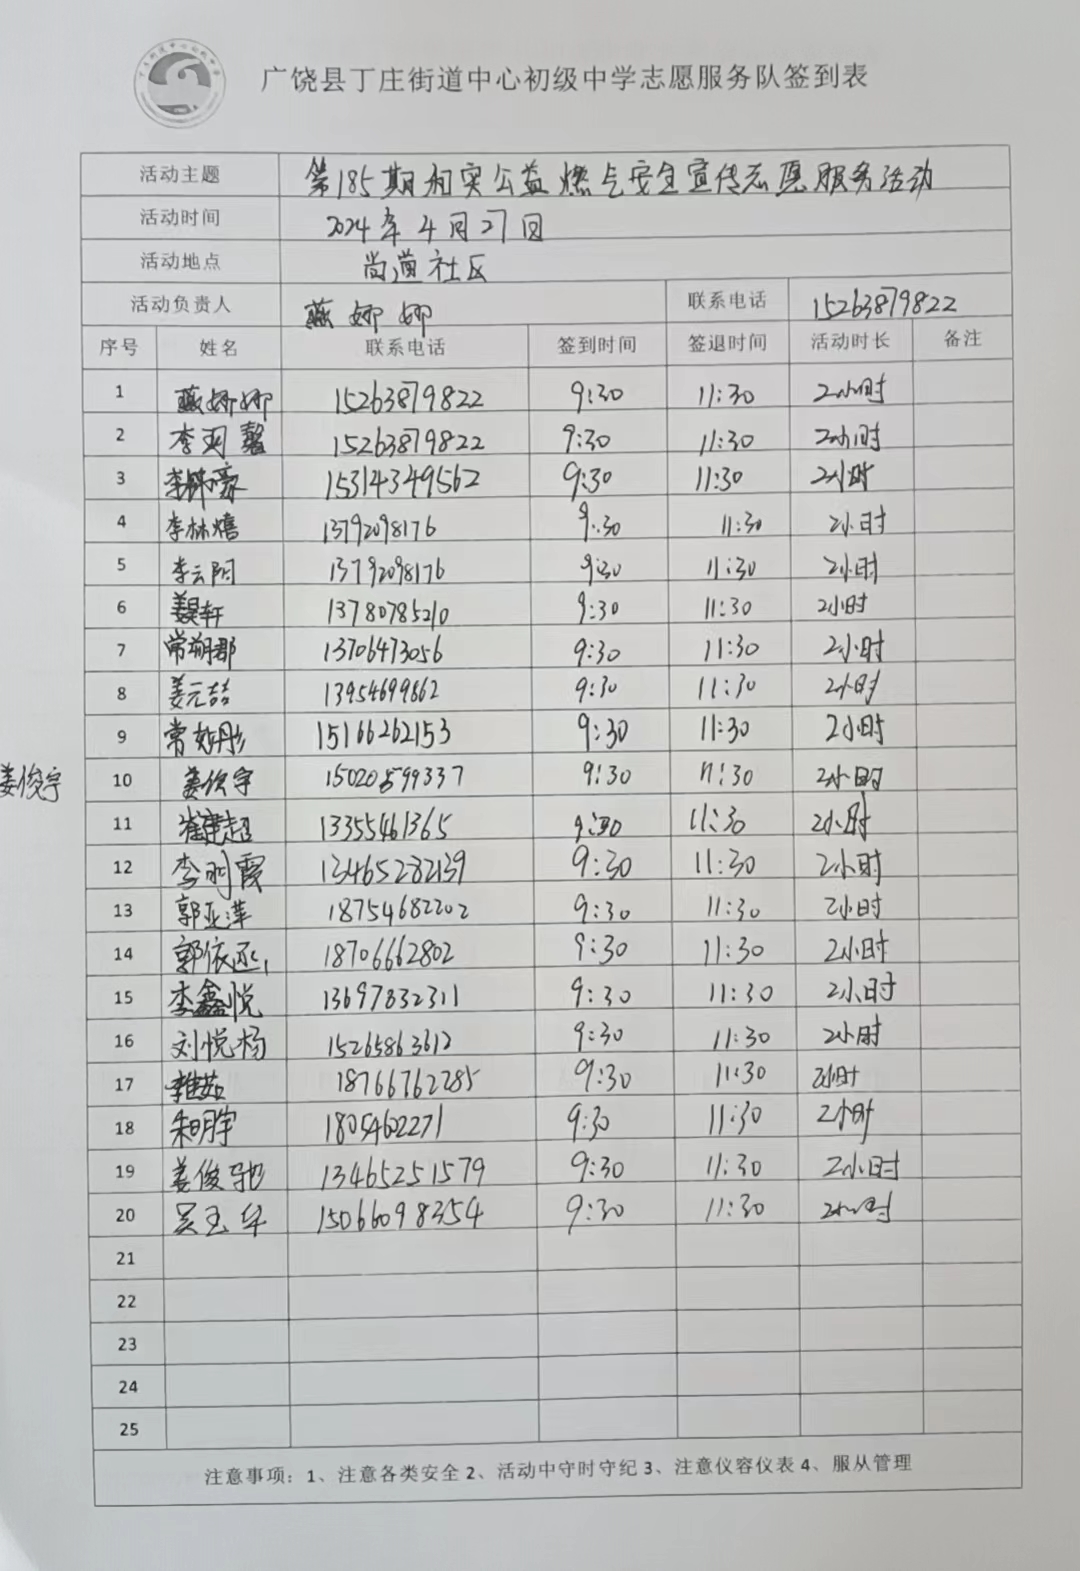 广饶县丁庄街道中心初级中学志愿服务队签到表
活动主题 第185期和实公益燃气安全宣传志愿服务活动
活动时间 2024年4月27日
活动地点 尚道社区
活动负责人 燕娜娜 联系电话 15263879822
序号 姓名 联系电话 签到时间 签退时间 活动时长 备注
1 燕娜娜 15263879822 9:30 11:30 2小时
2 李羽馨 15263879822 9:30 11:30 2小时
3 15314349562 9:30 11:30 2小时
4 李林熺 13792098176 9:30 11:30 2小时
5 李云阳 13792098176 9:30 11:30 2小时
6 姜昊轩 13780785210 9:30 11:30 2小时
7 常朔郡 13706473056 9:30 11:30 2小时
8 姜元喆 13954699862 9:30 11:30 2小时
9 常妙彤 15166262153 9:30 11:30 2小时
姜俊宇 10 姜俊宇 15020599337 9:30 11:30 2小时
11 崔建超 13355461365 9:30 11:30 2小时
12 李明霞 13465282139 9:30 11:30 2小时
13 郭亚萍 18754682202 9:30 11:30 2小时
14 郭依丞 18706662802 9:30 11:30 2小时
15 李鑫悦 13697832311 9:30 11:30 2小时
16 刘悦杨 15265863612 9:30 11:30 2小时
17 18766762285 9:30 11:30 2小时
18 朱明宇 18054602271 9:30 11:30 2小时
19 姜俊驰 13465251579 9:30 11:30 2小时
20 吴玉华 15066098354 9:30 11:30 2小时
21
22
23
24
25
注意事项：1、注意各类安全 2、活动中守时守纪 3、注意仪容仪表 4、服从管理